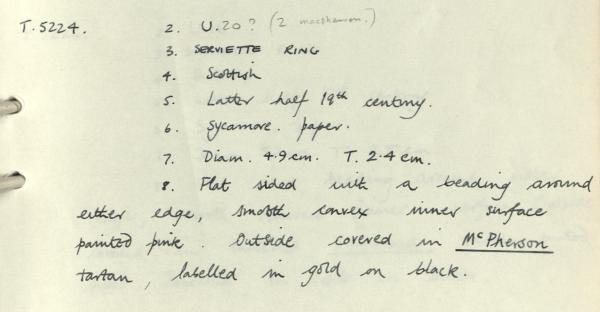 T.5224. 2. U.20? (2 macpherson.)
3. SERVIETTE RING
4. Scottish
5. Latter half 19th century.
6. Sycamore. paper.
7. Diam. 4.9cm. T. 2.4cm.
8. Flat sided with a beading around
either edge, smooth convex inner surface
painted pink. Outside covered in McPherson
tartan, labelled in gold on black.